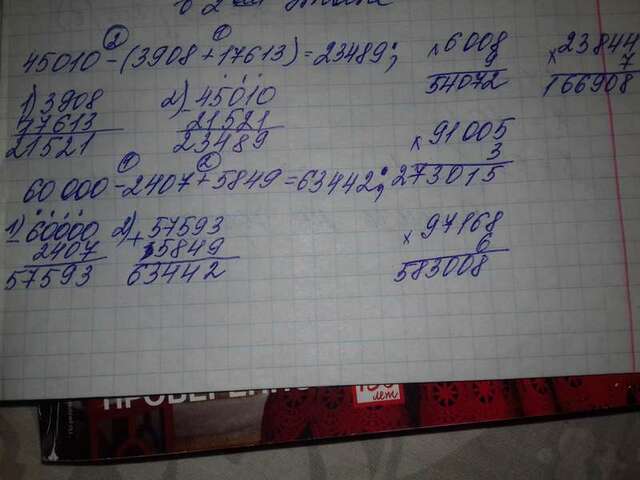 в 2
45010-(3908+17613)=23489;
1) 3908
17613
21521
2) 45010
- 21521
23489
60 000-2407+5849=63442;
1) 60000
- 2407
57593
2) 57593
+ 5849
63442
× 6008
9
54072
× 23844
7
166908
× 91005
3
273015
× 97168
6
583008
ПРОВЕРЕННО
лет